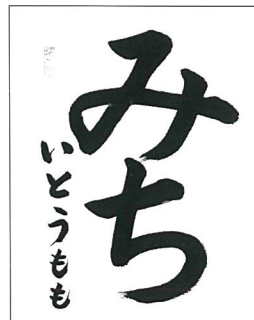 みち
いとうもも